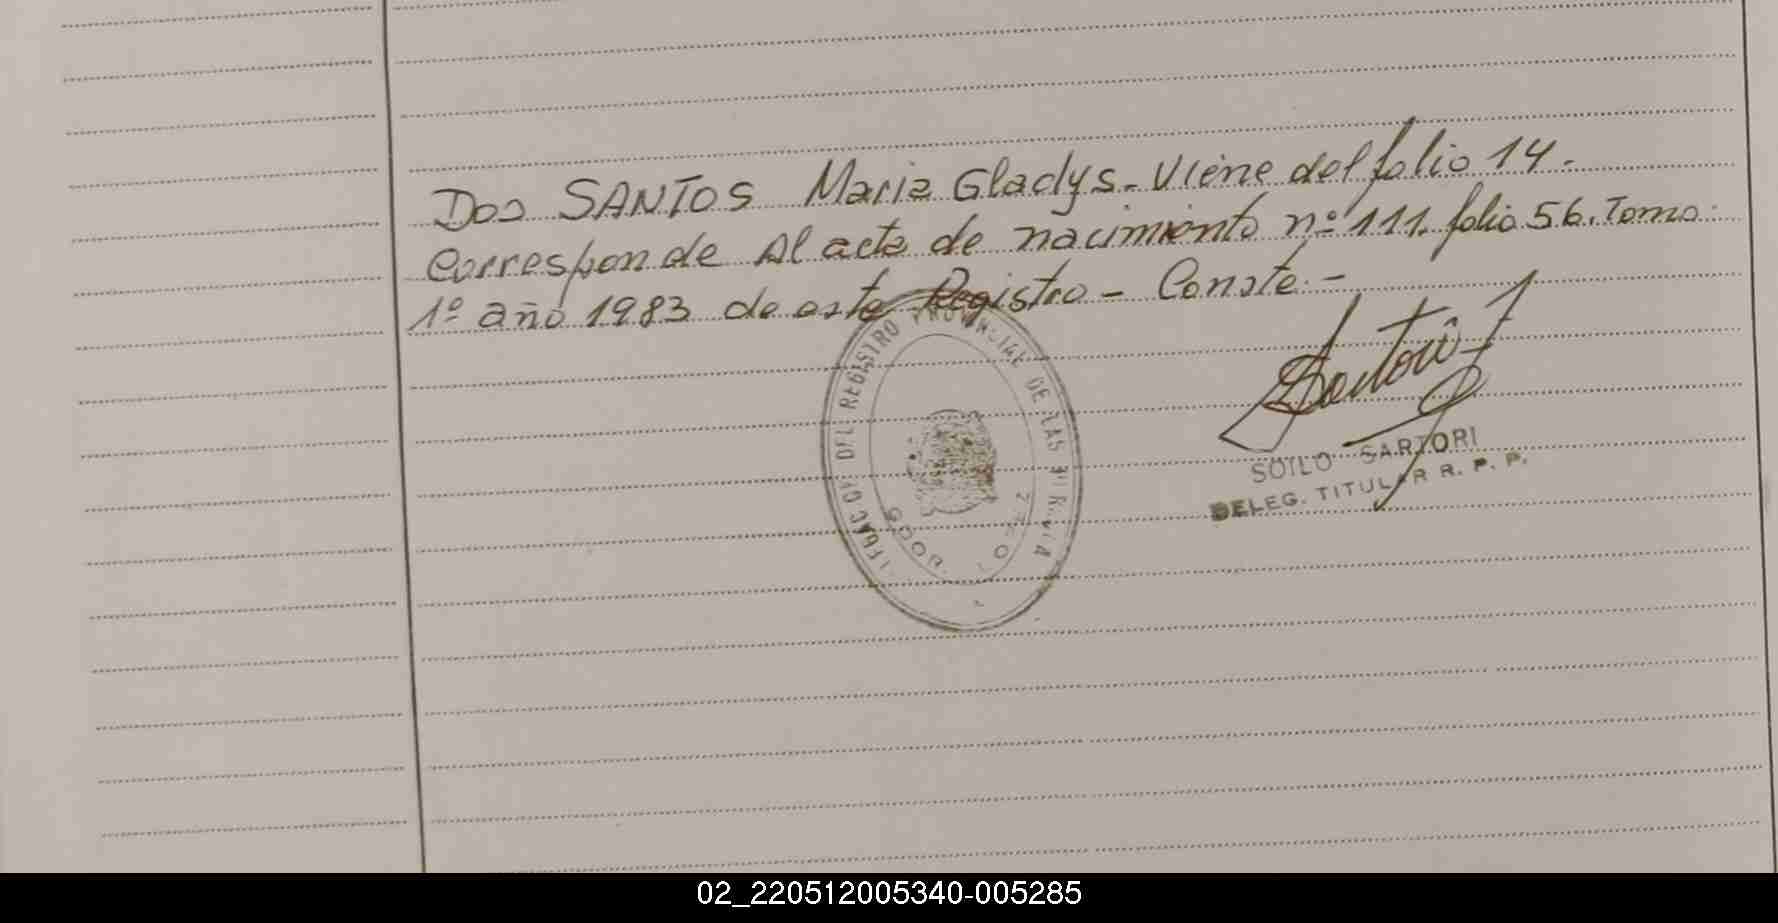 Dos SANTOS Maria Gladys. Viene del folio 14.
Corresponde Al acta de nacimiento nº 111. folio 56. Tomo
1º año 1983 de este Registro - Conste. -
Sartori
SOILO SARTORI
DELEG. TITULAR R. P. P.
DEL REGISTRO PROVINCIAL DE LAS
GDOR.
02_220512005340-005285